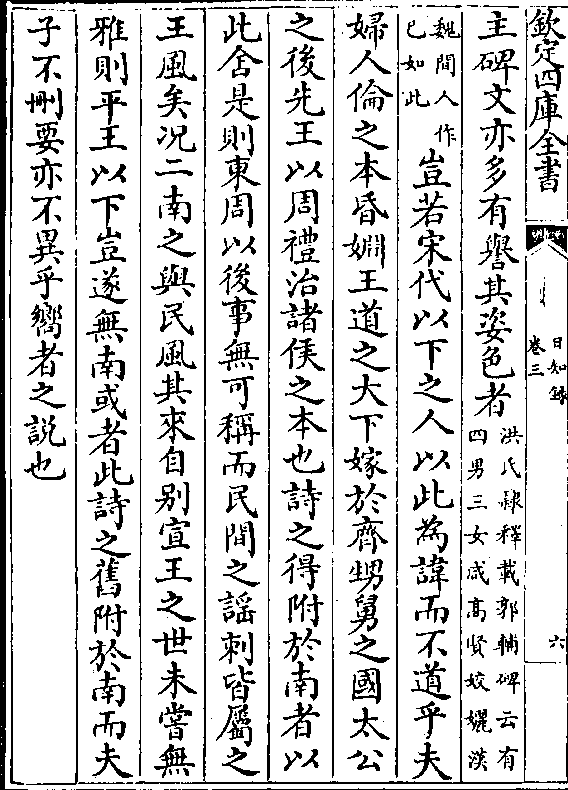 欽定四庫全書
日知錄
卷三
六
主碑文亦多有譽其姿色者
洪氏隸釋載郭輔碑云有
四男三女咸高賢姣孋漢
魏間人作
已如此
豈若宋代以下之人以此為諱而不道乎夫
婦人倫之本昏姻王道之大下嫁於齊甥舅之國太公
之後先王以周禮治諸侯之本也詩之得附於南者以
此舍是則東周以後事無可稱而民間之謡刺皆屬之
王風矣况二南之與民風其來自别宣王之世未嘗無
雅則平王以下豈遂無南或者此詩之舊附於南而夫
子不刪要亦不異乎嚮者之説也